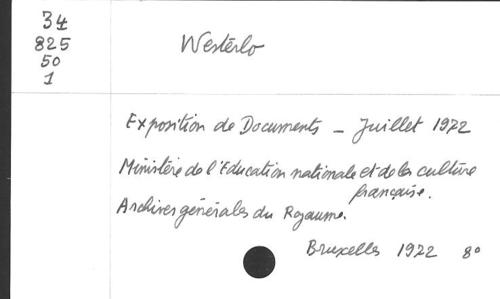 34
825
50
1
Westerlo
Exposition de Documents - Juillet 1972
Ministère de l'Education nationale et de la culture
française.
Archives générales du Royaume.
Bruxelles 1972 8°